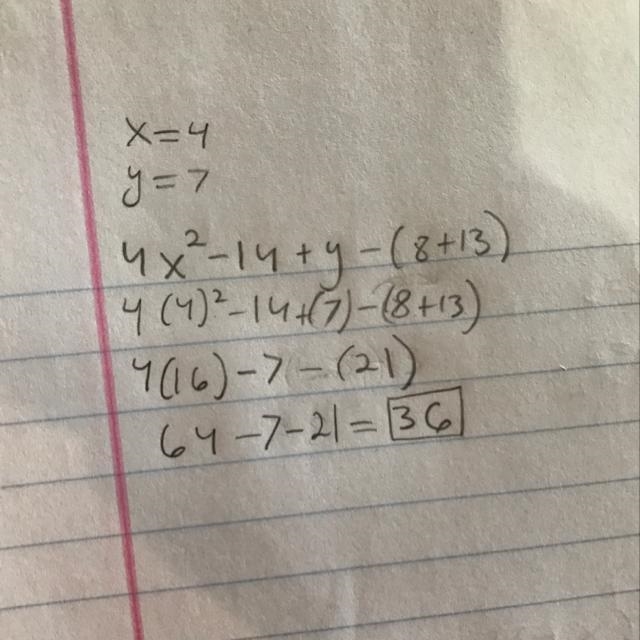 x=4
y=7
4x²-14+y-(8+13)
4(4)²-14+(7)-(8+13)
4(16)-7-(21)
64-7-21=36